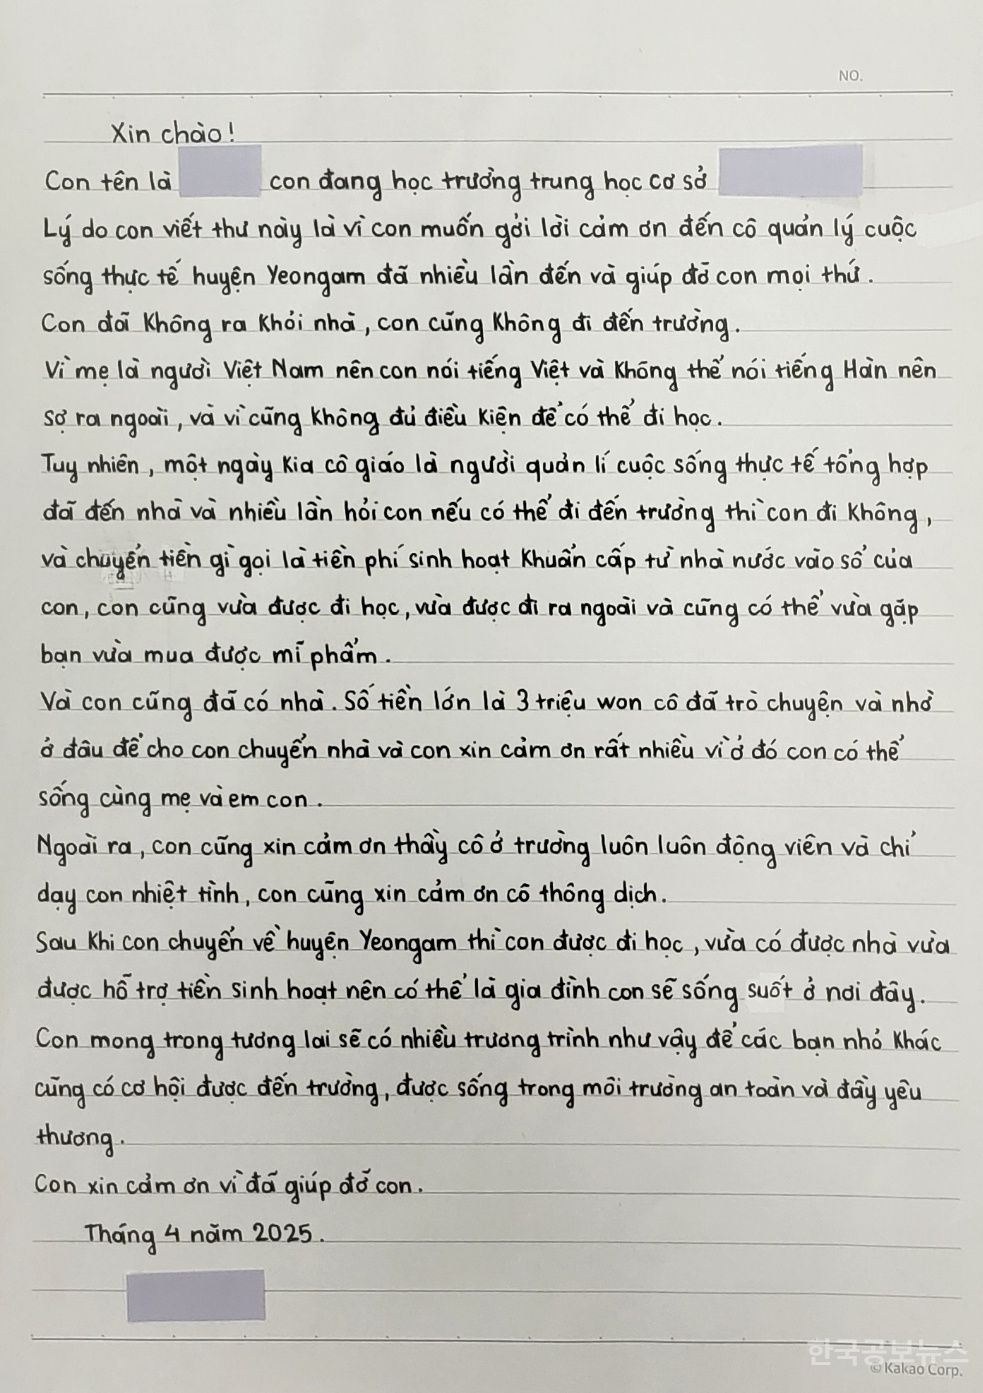 NO.
Xin chào!
Con tên là con đang học trường trung học cơ sở
Lý do con viết thư này là vì con muốn gởi lời cảm ơn đến cô quản lý cuộc
sống thực tế huyện Yeongam đã nhiều lần đến và giúp đỡ con mọi thứ.
Con đã không ra khỏi nhà, con cũng không đi đến trường.
Vì mẹ là người Việt Nam nên con nói tiếng Việt và không thể nói tiếng Hàn nên
sợ ra ngoài, và vì cũng không đủ điều kiện để có thể đi học.
Tuy nhiên, một ngày kia cô giáo là người quản lí cuộc sống thực tế tổng hợp
đã đến nhà và nhiều lần hỏi con nếu có thể đi đến trường thì con đi không,
và chuyển tiền gì gọi là tiền phí sinh hoạt khuẩn cấp từ nhà nước vào sổ của
con, con cũng vừa được đi học, vừa được đi ra ngoài và cũng có thể vừa gặp
bạn vừa mua được mĩ phẩm.
Và con cũng đã có nhà. Số tiền lớn là 3 triệu won cô đã trò chuyện và nhờ
ở đâu để cho con chuyển nhà và con xin cảm ơn rất nhiều vì ở đó con có thể
sống cùng mẹ và em con.
Ngoài ra, con cũng xin cảm ơn thầy cô ở trường luôn luôn động viên và chỉ
dạy con nhiệt tình, con cũng xin cảm ơn cô thông dịch.
Sau khi con chuyển về huyện Yeongam thì con được đi học, vừa có được nhà vừa
được hỗ trợ tiền sinh hoạt nên có thể là gia đình con sẽ sống suốt ở nơi đây.
Con mong trong tương lai sẽ có nhiều trương trình như vậy để các bạn nhỏ khác
cũng có cơ hội được đến trường, được sống trong môi trường an toàn và đầy yêu
thương.
Con xin cảm ơn vì đã giúp đỡ con.
Tháng 4 năm 2025.
한국공보뉴스
© Kakao Corp.